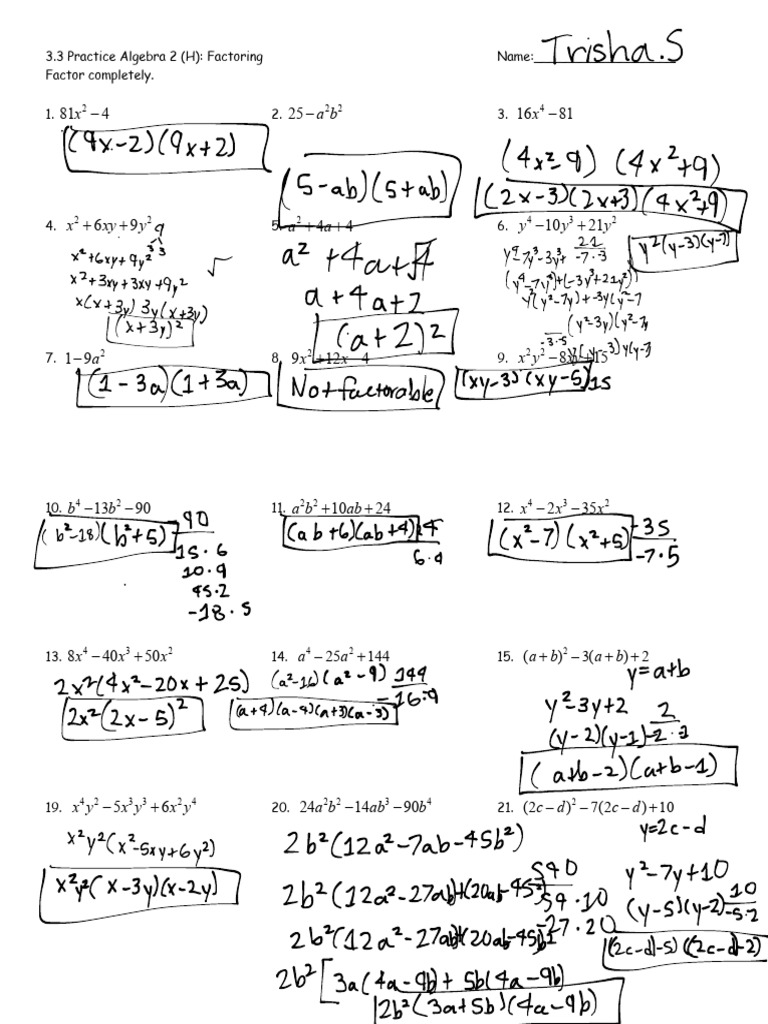 3.3 Practice Algebra 2 (H): Factoring
Name: Trisha.S
Factor completely.
1. 81x² − 4
(9x-2)(9x+2)
2. 25 − a²b²
(5-ab)(5+ab)
3. 16x⁴ − 81
(4x²-9) (4x²+9)
(2x-3)(2x+3)(4x²+9)
4. x² + 6xy + 9y²
9
3 3
x²+6xy+9y²
x²+3xy+3xy+9y²
x(x+3y) 3y(x+3y)
(x+3y)²
5. a² + 4a + 4
a² + 4a + 4
a + 4a + 2
(a+2)²
6. y⁴ − 10y³ + 21y²
21
-7 · 3
(y⁴-7y³)+(-3y³+21y²)
(y²-3y)(y²-7y
y²(y-3)(y-7)
7. 1 − 9a²
(1-3a)(1+3a)
8. 9x² + 12x − 4
Not factorable
9. x²y² − 8xy + 15
-3·5
(xy-3)(xy-5)
15
10. b⁴ − 13b² − 90
(b²-18)(b²+5)
-90
15·6
10·9
45·2
-18·5
11. a²b² + 10ab + 24
(ab+6)(ab+4)
24
6·4
12. x⁴ − 2x³ − 35x²
(x²-7)(x²+5)
-35
-7·5
13. 8x⁴ − 40x³ + 50x²
2x²(4x²-20x+25)
2x²(2x-5)²
14. a⁴ − 25a² + 144
(a²-16)(a²-9)
144
-16·9
(a+4)(a-4)(a+3)(a-3)
15. (a+b)² − 3(a+b) + 2
y=a+b
y²-3y+2
2
(y-2)(y-1)
-2·1
(a+b-2)(a+b-1)
19. x⁴y² − 5x³y³ + 6x²y⁴
x²y²(x²-5xy+6y²)
x²y²(x-3y)(x-2y)
20. 24a²b² − 14ab³ − 90b⁴
2b²(12a²-7ab-45b²)
540
54·10
-27·20
2b²(12a²-27ab)+(20ab-45²)
2b²(12a²-27ab)+(20ab-45b
2b²[3a(4a-9b)+5b(4a-9b)
2b²(3a+5b)(4a-9b)
21. (2c−d)² − 7(2c−d) + 10
y=2c-d
y²-7y+10
10
(y-5)(y-2)
-5·2
(2c-d-5)((2c-d-2)